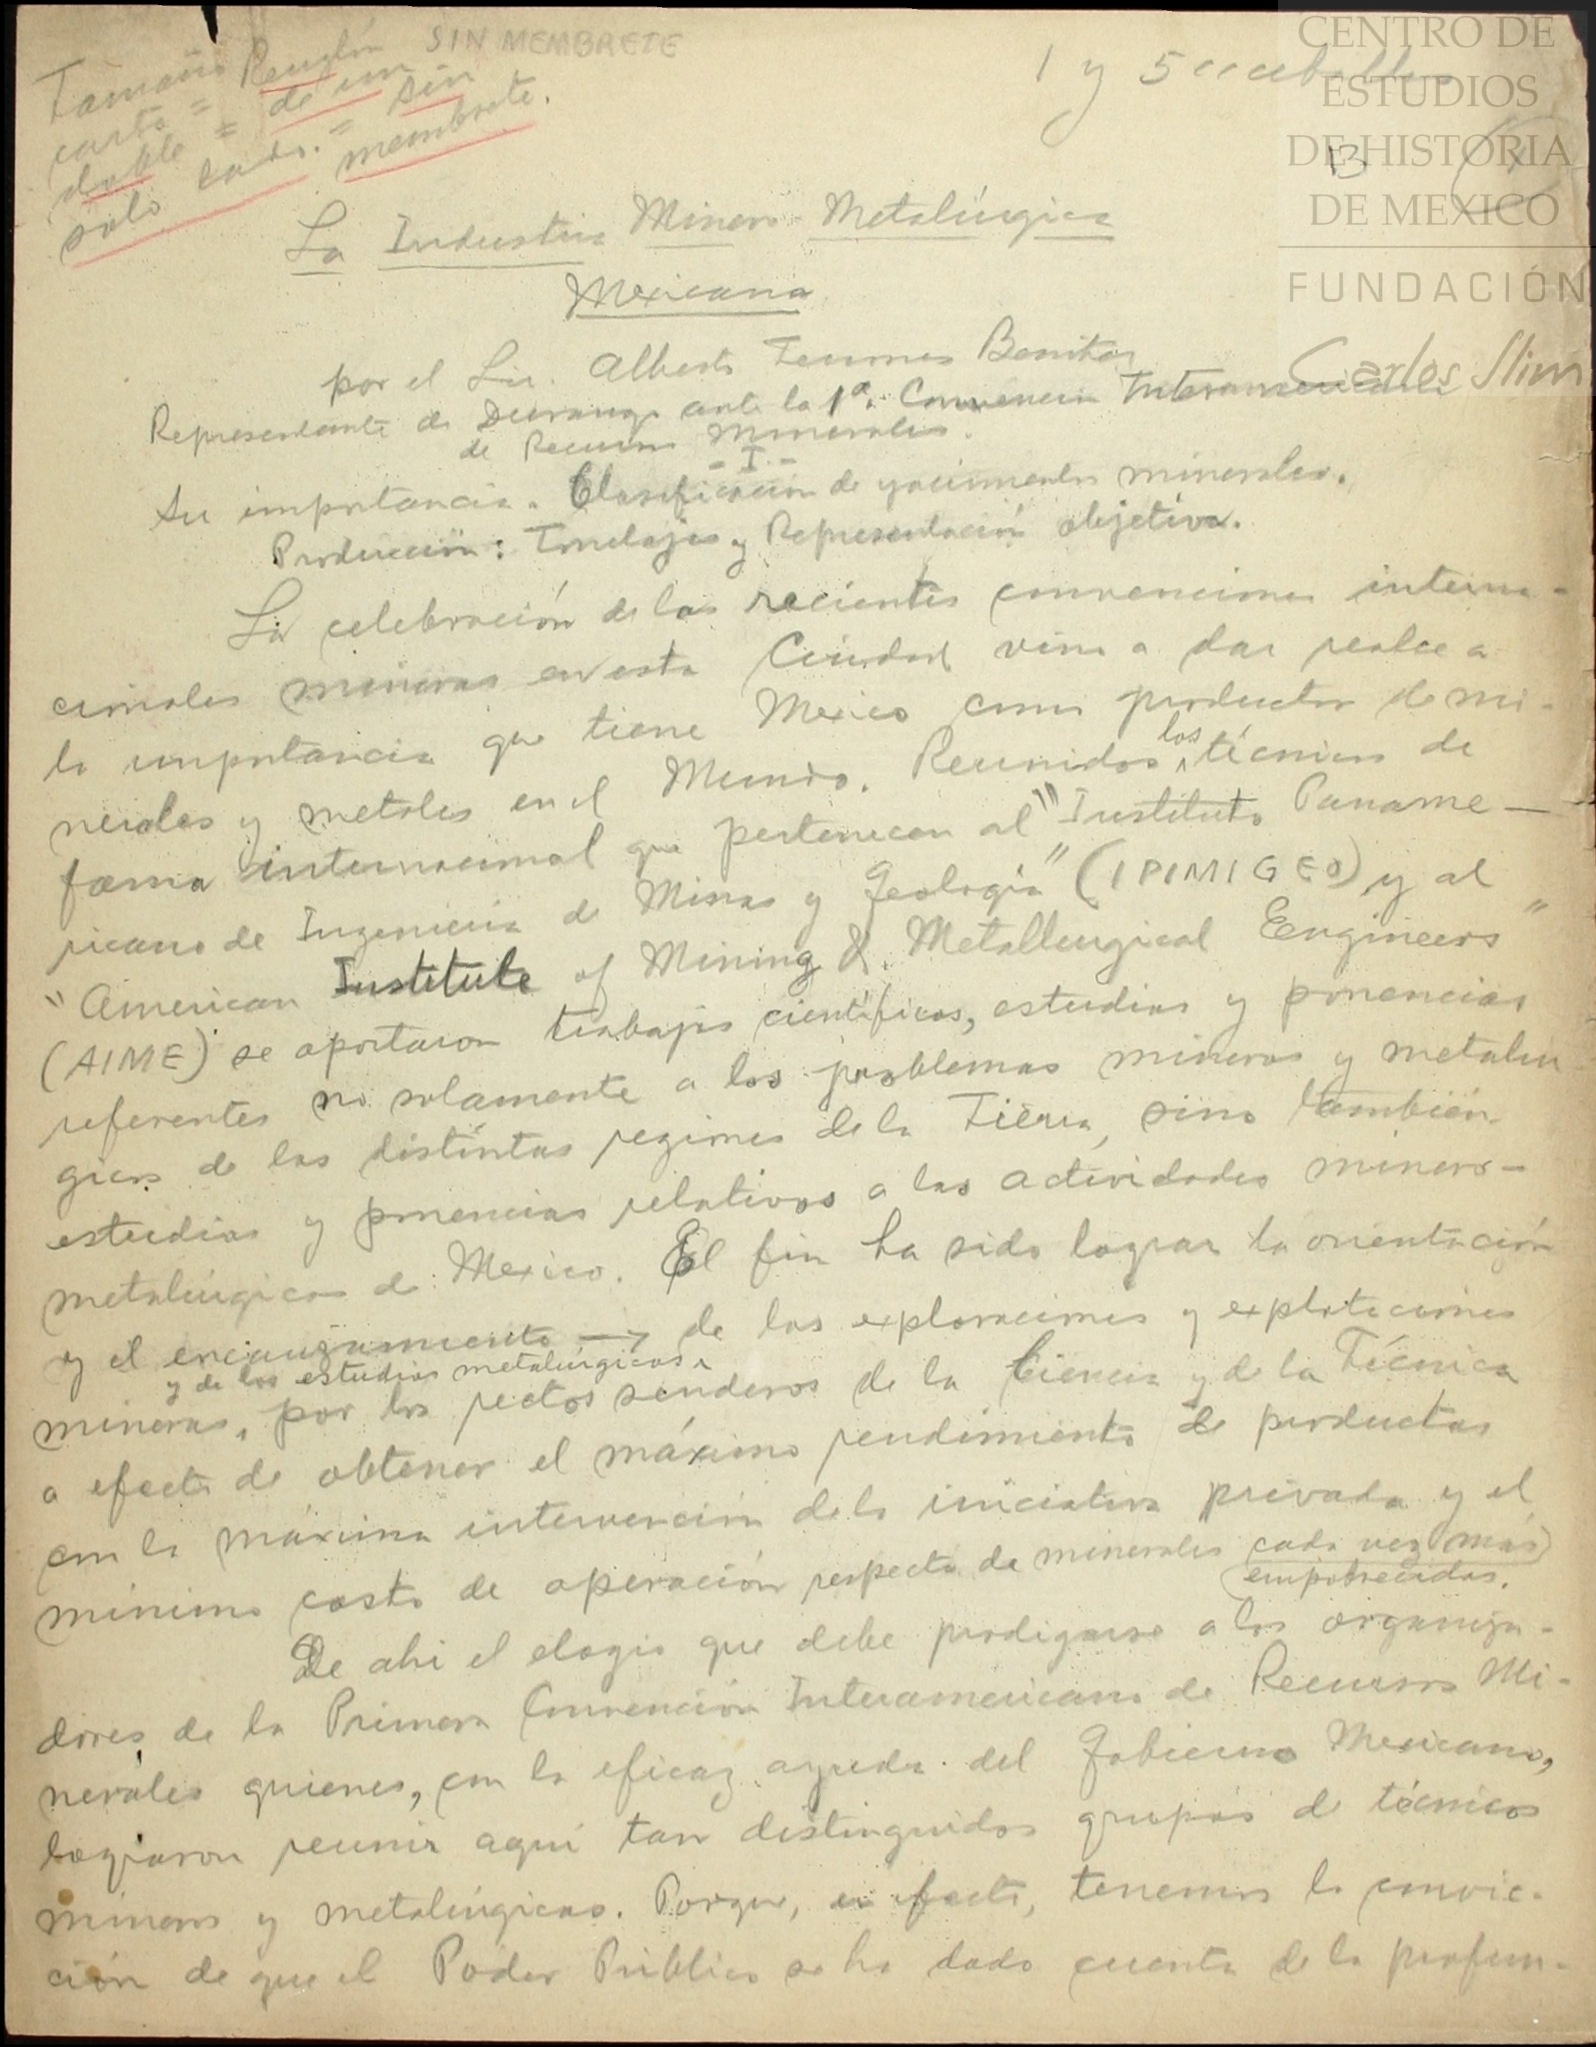 SIN MEMBRETE
Tamaño Renglón
carta = de un
doble = sin
solo lado. = membrete.
1 y 5
B
La Industria Minero-Metalúrgica
Mexicana
por el Lic. Alberto Terrones Benitez
Representante de Durango ante la 1ª. Convención Interamericana
de Recursos Minerales.
- I -
Su importancia. Clasificación de yacimientos minerales.
Producción: Tonelajes y Representación objetiva.
La celebración de las recientes convenciones interna-
cionales mineras en esta Ciudad vino a dar realce a
la importancia que tiene Mexico como productor de mi-
nerales y metales en el Mundo. Reunidos los técnicos de
fama internacional que pertenecen al "Instituto Paname-
ricano de Ingenieria de Minas y Geología" (IPIMIGEO) y al
"American Institute of Mining & Metallurgical Engineers"
(AIME) se aportaron trabajos científicos, estudios y ponencias
referentes no solamente a los problemas mineros y metalur
gicos de las distintas regiones de la Tierra, sino también
estudios y ponencias relativos a las actividades minero-
metalúrgicas de Mexico. El fin ha sido lograr la orientación
y el encauzamiento de las exploraciones y explotaciones
y de los estudios metalúrgicos,
mineras, por los rectos senderos de la Ciencia y de la Técnica
a efecto de obtener el máximo rendimiento de productos
con la máxima intervención de la iniciativa privada y el
mínimo costo de operación respecto de minerales cada vez más
empobrecidos.
De ahi el elogio que debe prodigarse a los organiza-
dores de la Primera Convención Interamericana de Recursos Mi-
nerales quienes, con la eficaz ayuda del Gobierno Mexicano,
lograron reunir aquí tan distinguidos grupos de técnicos
mineros y metalúrgicos. Porque, en efecto, tenemos la convic-
ción de que el Poder Público se ha dado cuenta de la profun-
CENTRO DE
ESTUDIOS
DE HISTORIA
DE MEXICO
FUNDACIÓN
Carlos Slim